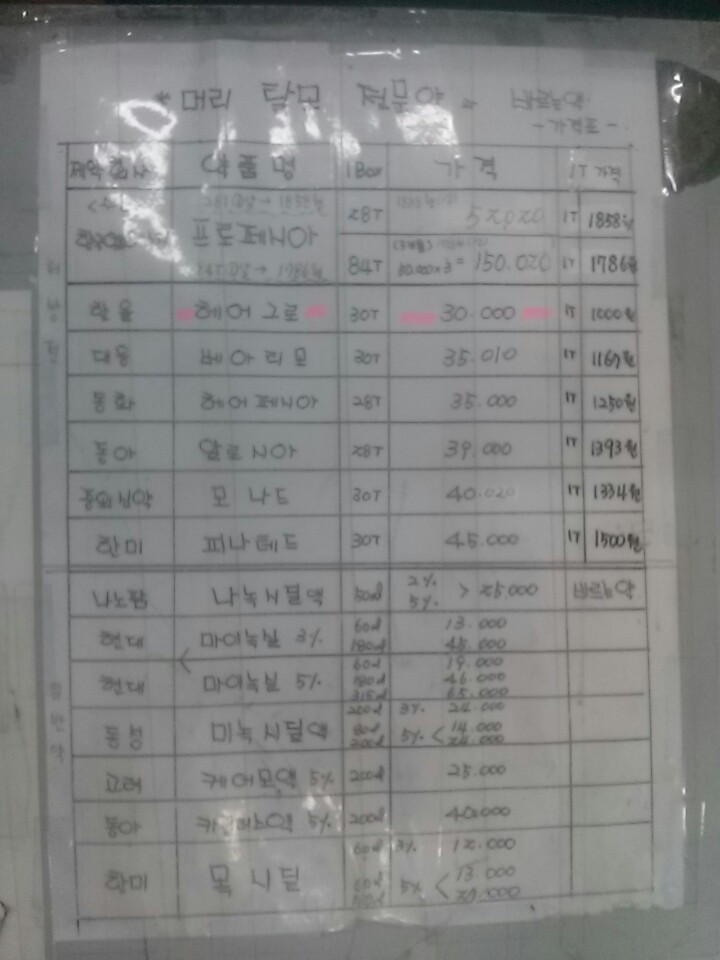 * 머리 탈모 전문약 = 바르는약
- 가격표 -
제약회사 약품명 1Box 가격 1T 가격
프로페시아 28T 52,020 1T 1858원
84T 50.000x3 = 150.020 1T 1786원
한올 헤어그로 30T 30.000 1T 1000원
대웅 베아리모 30T 35.010 1T 1167원
동화 헤어페시아 28T 35.000 1T 1250원
동아 알로시아 28T 39.000 1T 1393원
중외신약 모나드 30T 40.020 1T 1334원
한미 피나테드 30T 45.000 1T 1500원
나노팜 나녹시딜액 50ml 2% 5% > 25,000 바르는약
현대 마이녹실 3% 60ml 13.000
180ml 45.000
현대 마이녹실 5% 60ml 19.000
180ml 46.000
315ml 65.000
동성 미녹시딜액 200ml 3% 24.000
5% < 14.000
200ml 24.000
고려 케어모액 5% 200ml 25.000
동아 5% 200ml 40.000
한미 목시딜 60ml 3% 12.000
60ml 5% < 13.000
20.000
일반약